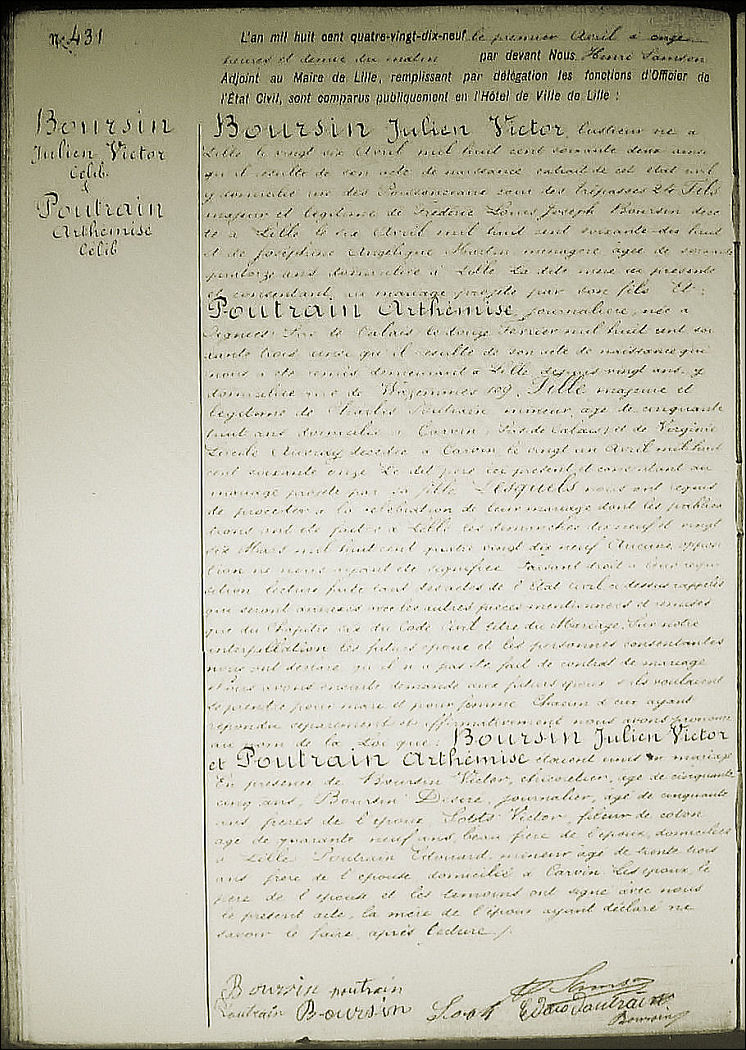 n. 431
L'an mil huit cent quatre-vingt-dix-neuf le premier Avril à onze
heures et demie du matin par devant Nous, Henri Samson
Adjoint au Maire de Lille, remplissant par délégation les fonctions d'Officier de
l'État Civil, sont comparus publiquement en l'Hôtel de Ville de Lille :
Boursin
Julien Victor
Célib.
&
Poutrain
Arthémise
Célib
Boursin Julien Victor, né à
Lille le vingt six Avril mil huit cent soixante deux ainsi
qu'il résulte de son acte de naissance extrait de cet état civil
y domicilié cour des Trépassés 24 Fils
majeur et légitime de Frédéric Louis Joseph Boursin décé
dé à Lille le six Avril mil huit cent soixante-dix huit
et de Joséphine Angélique Martin, ménagère âgée de soixante
quatorze ans domiciliée à Lille La dite mère ici présente
et consentant au mariage projeté par son fils Et :
Poutrain Arthémise, journalière, née à
Pas de Calais le douze Février mil huit cent soi
xante trois ainsi qu'il résulte de son acte de naissance que
nous a été remis demeurant à Lille depuis vingt ans, y
domiciliée rue de Wazemmes 109, Fille majeure et
légitime de Charles Poutrain, mineur, âgé de cinquante
huit ans domicilié à Carvin (Pas de Calais) et de Virginie
décédée à Carvin le vingt un Avril mil huit
cent soixante onze Le dit père ici présent et consentant au
mariage projeté par sa fille Lesquels nous ont requis
de procéder à la célébration de leur mariage dont les publica
tions ont été faites à Lille les dimanches dix neuf et vingt
six Mars mil huit cent quatre vingt dix neuf Aucune opposi
tion ne nous ayant été signifiée Faisant droit à leur réqui
sition lecture faite tant des actes de l'État Civil ci dessus rappelés
qui seront annexés avec les autres pièces mentionnées et remises
que du Chapitre six du Code Civil titre du Mariage, Sur notre
interpellation les futurs époux et les personnes consentantes
nous ont déclaré qu'il n'a pas été fait de contrat de mariage
Nous avons ensuite demandé aux futurs époux s'ils voulaient
se prendre pour mari et pour femme Chacun d'eux ayant
répondu séparément et affirmativement nous avons prononcé
au nom de la Loi que : Boursin Julien Victor
et Poutrain Arthémise étaient unis en mariage
En présence de Boursin Victor, âgé de cinquante
cinq ans, Boursin Désiré, journalier, âgé de cinquante
ans frères de l'époux, Victor, fileur de coton
âgé de quarante neuf ans, beau frère de l'époux, domiciliés
à Lille Poutrain Edouard, mineur âgé de trente trois
ans frère de l'épouse domicilié à Carvin Les époux, le
père de l'épouse et les témoins ont signé avec nous
le présent acte, la mère de l'époux ayant déclaré ne
savoir le faire, après lecture /.
Boursin poutrain
H. Samson
Poutrain Boursin
Boursin